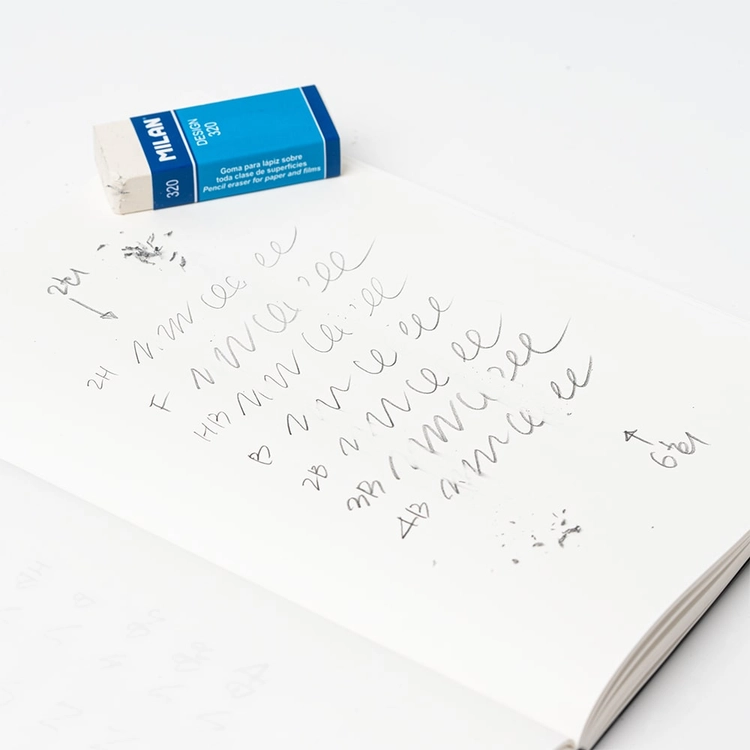 MILAN
320
DESIGN
320
Goma para lápiz sobre
toda clase de superficies
Pencil eraser for paper and films
2H
F
HB
B
2B
3B
4B